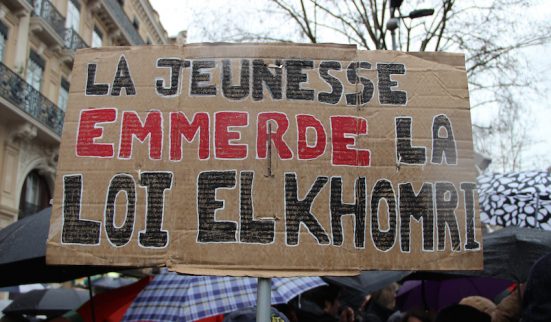 LA JEUNESSE
EMMERDE LA
LOI EL KHOMRI